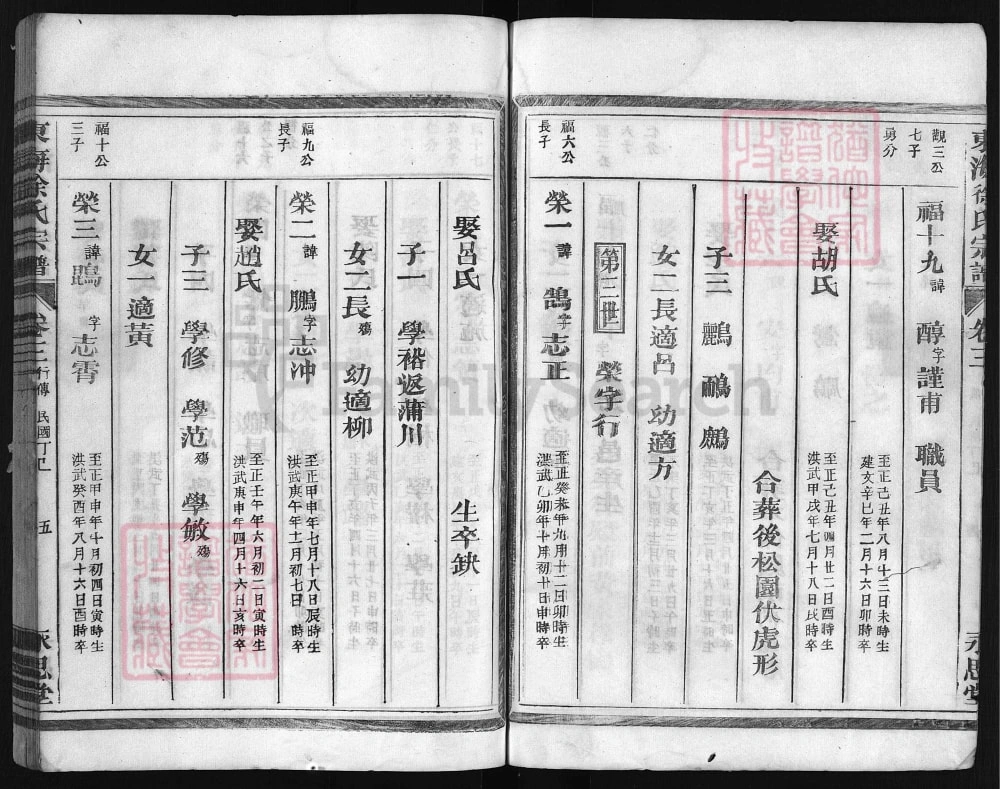 東海徐氏宗譜 卷三 永思堂
觀三公
七子
勇分
福十九 諱 醇 字 謹甫 職員
至正己丑年八月十三日未時生
建文辛巳年二月十六日卯時卒
娶胡氏
至正己丑年四月廿二日酉時生
洪武甲戌年七月十八日戌時卒
合葬後松園伏虎形
子三 鸝 鷸 鷓
女二 長適呂 幼適方
第三世 榮字行
福六公
長子
榮一 諱 鵠 字 志正
至正癸未年九月廿二日卯時生
洪武乙卯年十月初十日申時卒
娶呂氏 生卒缺
子一 學裕 返蒲川
女二 長殤 幼適柳
福九公
長子
榮二 諱 鵬 字 志沖
至正甲申年七月十八日辰時生
洪武庚午年十二月初七日 時卒
娶趙氏
至正壬午年六月初二日寅時生
洪武庚申年四月十六日亥時卒
子三 學修 學范殤 學敏殤
女一 適黃
福十公
三子
榮三 諱 鵾 字 志霄
至正甲申年十月初四日寅時生
洪武癸酉年八月十六日酉時卒
東海徐氏宗譜 卷三 行傳 民國丁巳 五 永思堂
FamilySearch